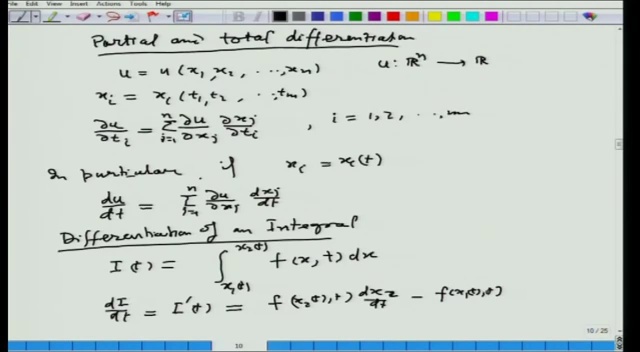 File Edit View Insert Actions Tools Help
Partial and total differentiation
u = u(x₁, x₂, ..., xₙ)    u: ℝⁿ → ℝ
xᵢ = xᵢ(t₁, t₂, ..., tₘ)
∂u/∂tᵢ = Σⱼ₌₁ⁿ ∂u/∂xⱼ ∂xⱼ/∂tᵢ , i = 1, 2, ..., m
In particular, if xᵢ = xᵢ(t)
du/dt = Σⱼ₌₁ⁿ ∂u/∂xⱼ dxⱼ/dt
Differentiation of an Integral
I(t) = ∫_{x₁(t)}^{x₂(t)} f(x, t) dx
dI/dt = I'(t) = f(x₂(t), t) dx₂/dt − f(x₁(t), t)
10 / 25
10